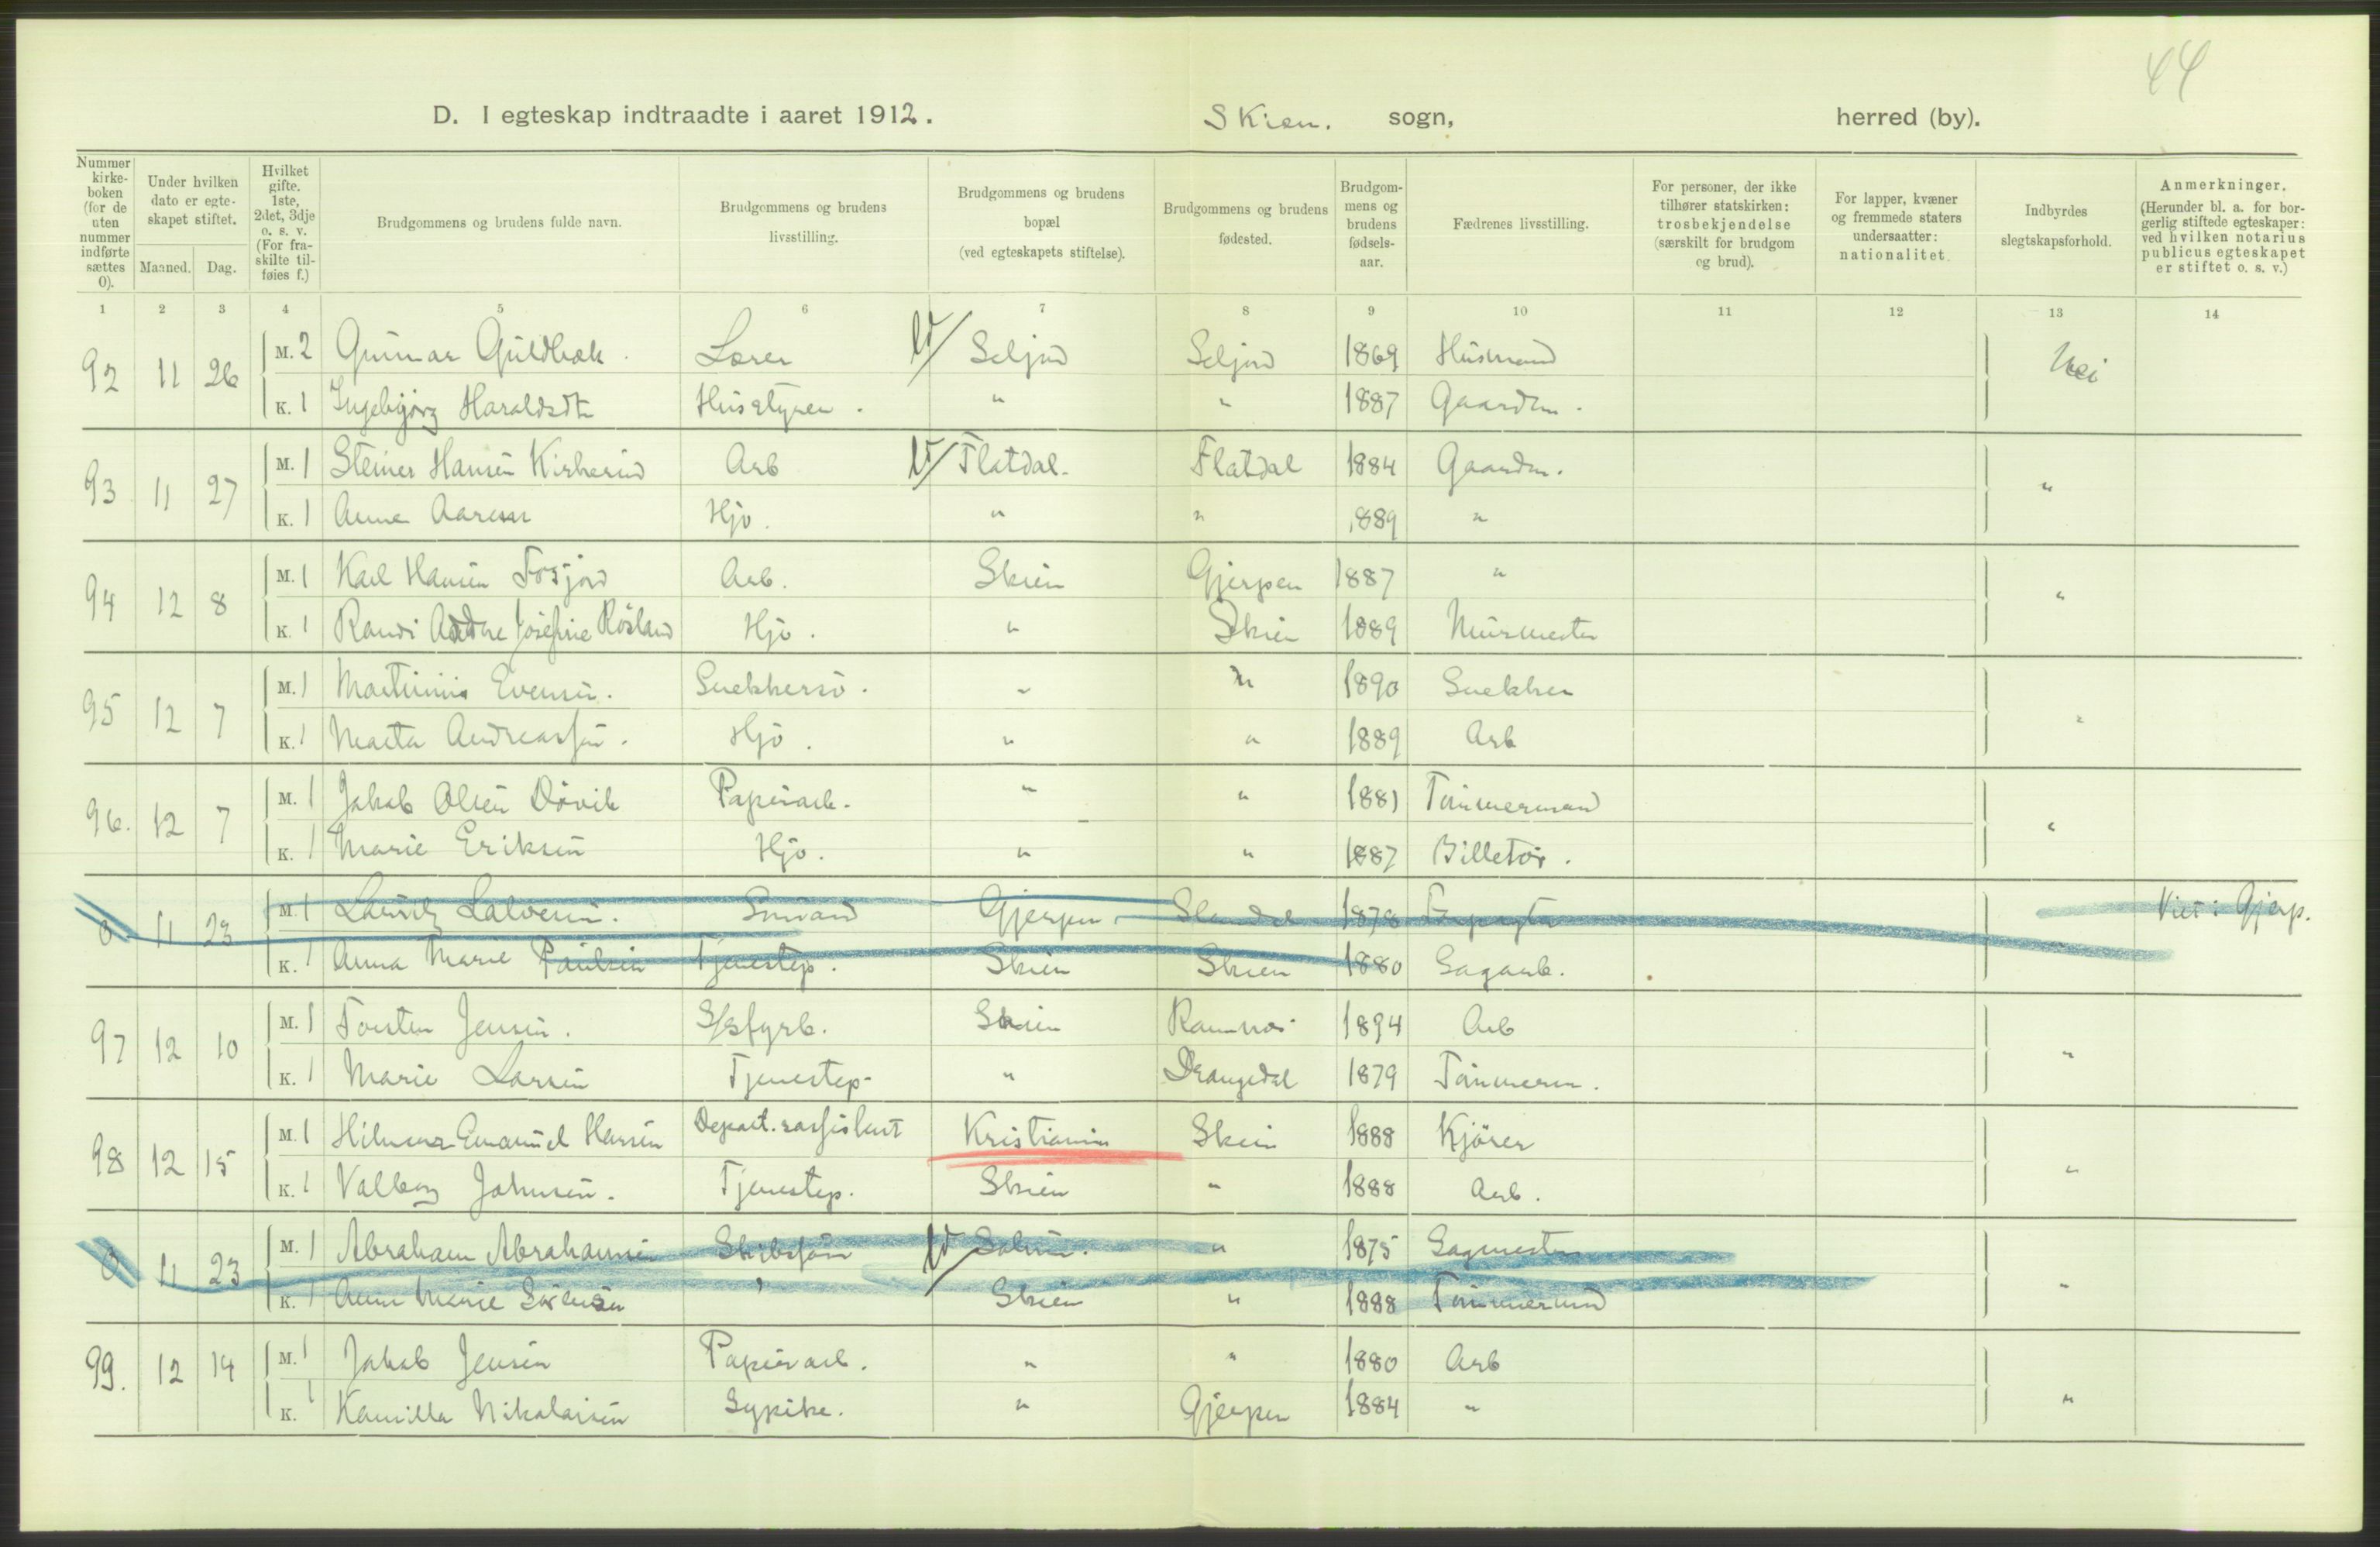 44
D. I egteskap indtraadte i aaret 1912. Skien. sogn, herred (by).
Nummer kirke-boken (for de uten nummer indførte sættes 0). Under hvilken dato er egte-skapet stiftet. Maaned. Dag. Hvilket gifte. 1ste, 2det, 3dje o. s. v. (For fra-skilte til-føies f.) Brudgommens og brudens fulde navn. Brudgommens og brudens livsstilling. Brudgommens og brudens bopæl (ved egteskapets stiftelse). Brudgommens og brudens fødested. Brudgom-mens og brudens fødsels-aar. Fædrenes livsstilling. For personer, der ikke tilhører statskirken: trosbekjendelse (særskilt for brudgom og brud). For lapper, kvæner og fremmede staters undersaatter: nationalitet. Indbyrdes slegtskapsforhold. Anmerkninger. (Herunder bl. a. for bor-gerlig stiftede egteskaper: ved hvilken notarius publicus egteskapet er stiftet o. s. v.)
1 2 3 4 5 6 7 8 9 10 11 12 13 14
92 11 26 M. 2 Gunnar Guldbæk Lærer Seljord Seljord 1869 Husmand Nei
K. 1 Ingebjørg Haraldsdtr Husstyrer. " " 1887 Gaardm.
93 11 27 M. 1 Steiner Hansen Arb Flatdal. Flatdal 1884 Gaardm. "
K. 1 Anne Hjv. " " 1889 "
94 12 8 M. 1 Karl Hansen Fosjord Arb. Skien Gjerpen 1887 " "
K. 1 Randi Josefine Røsland Hjv. " Skien 1889 Murmester
95 12 7 M. 1 Martinius Evensen. Snekkersv. " " 1890 Snekker "
K. 1 Marta Andreassen. Hjv. " " 1889 Arb
96. 12 7 M. 1 Jakob Olsen Papirarb. " " 1881 Tømmermand "
K. 1 Marie Eriksen Hjv. " " 1887 Billetør.
0 11 23 M. 1 Lauritz Salvesen. Smand Gjerpen 1878 Viet: Gjerp.
K. 1 Anna Marie Paulsen Tjenestep. Skien Skien 1880 Sagarb.
97 12 10 M. 1 Torsten Jensen. Skien 1894 Arb "
K. 1 Marie Larsen Tjenestep. " Drangedal 1879 Tømmerm.
98 12 15 M. 1 Hilmar Emanuel Hansen Kristiania Skien 1888 Kjører "
K. 1 Valborg Johnsen. Tjenestep. Skien " 1888 Arb.
0 11 23 M. 1 Abraham Abrahamsen Solum. " 1875 Sagmester "
K. 1 Anne Marie Sørensen " Skien " 1888 Tømmermand
99. 12 14 M. 1 Jakob Jensen Papirarb. " " 1880 Arb "
K. 1 Kamilla Nikolaisen Sypike. " Gjerpen 1884 "